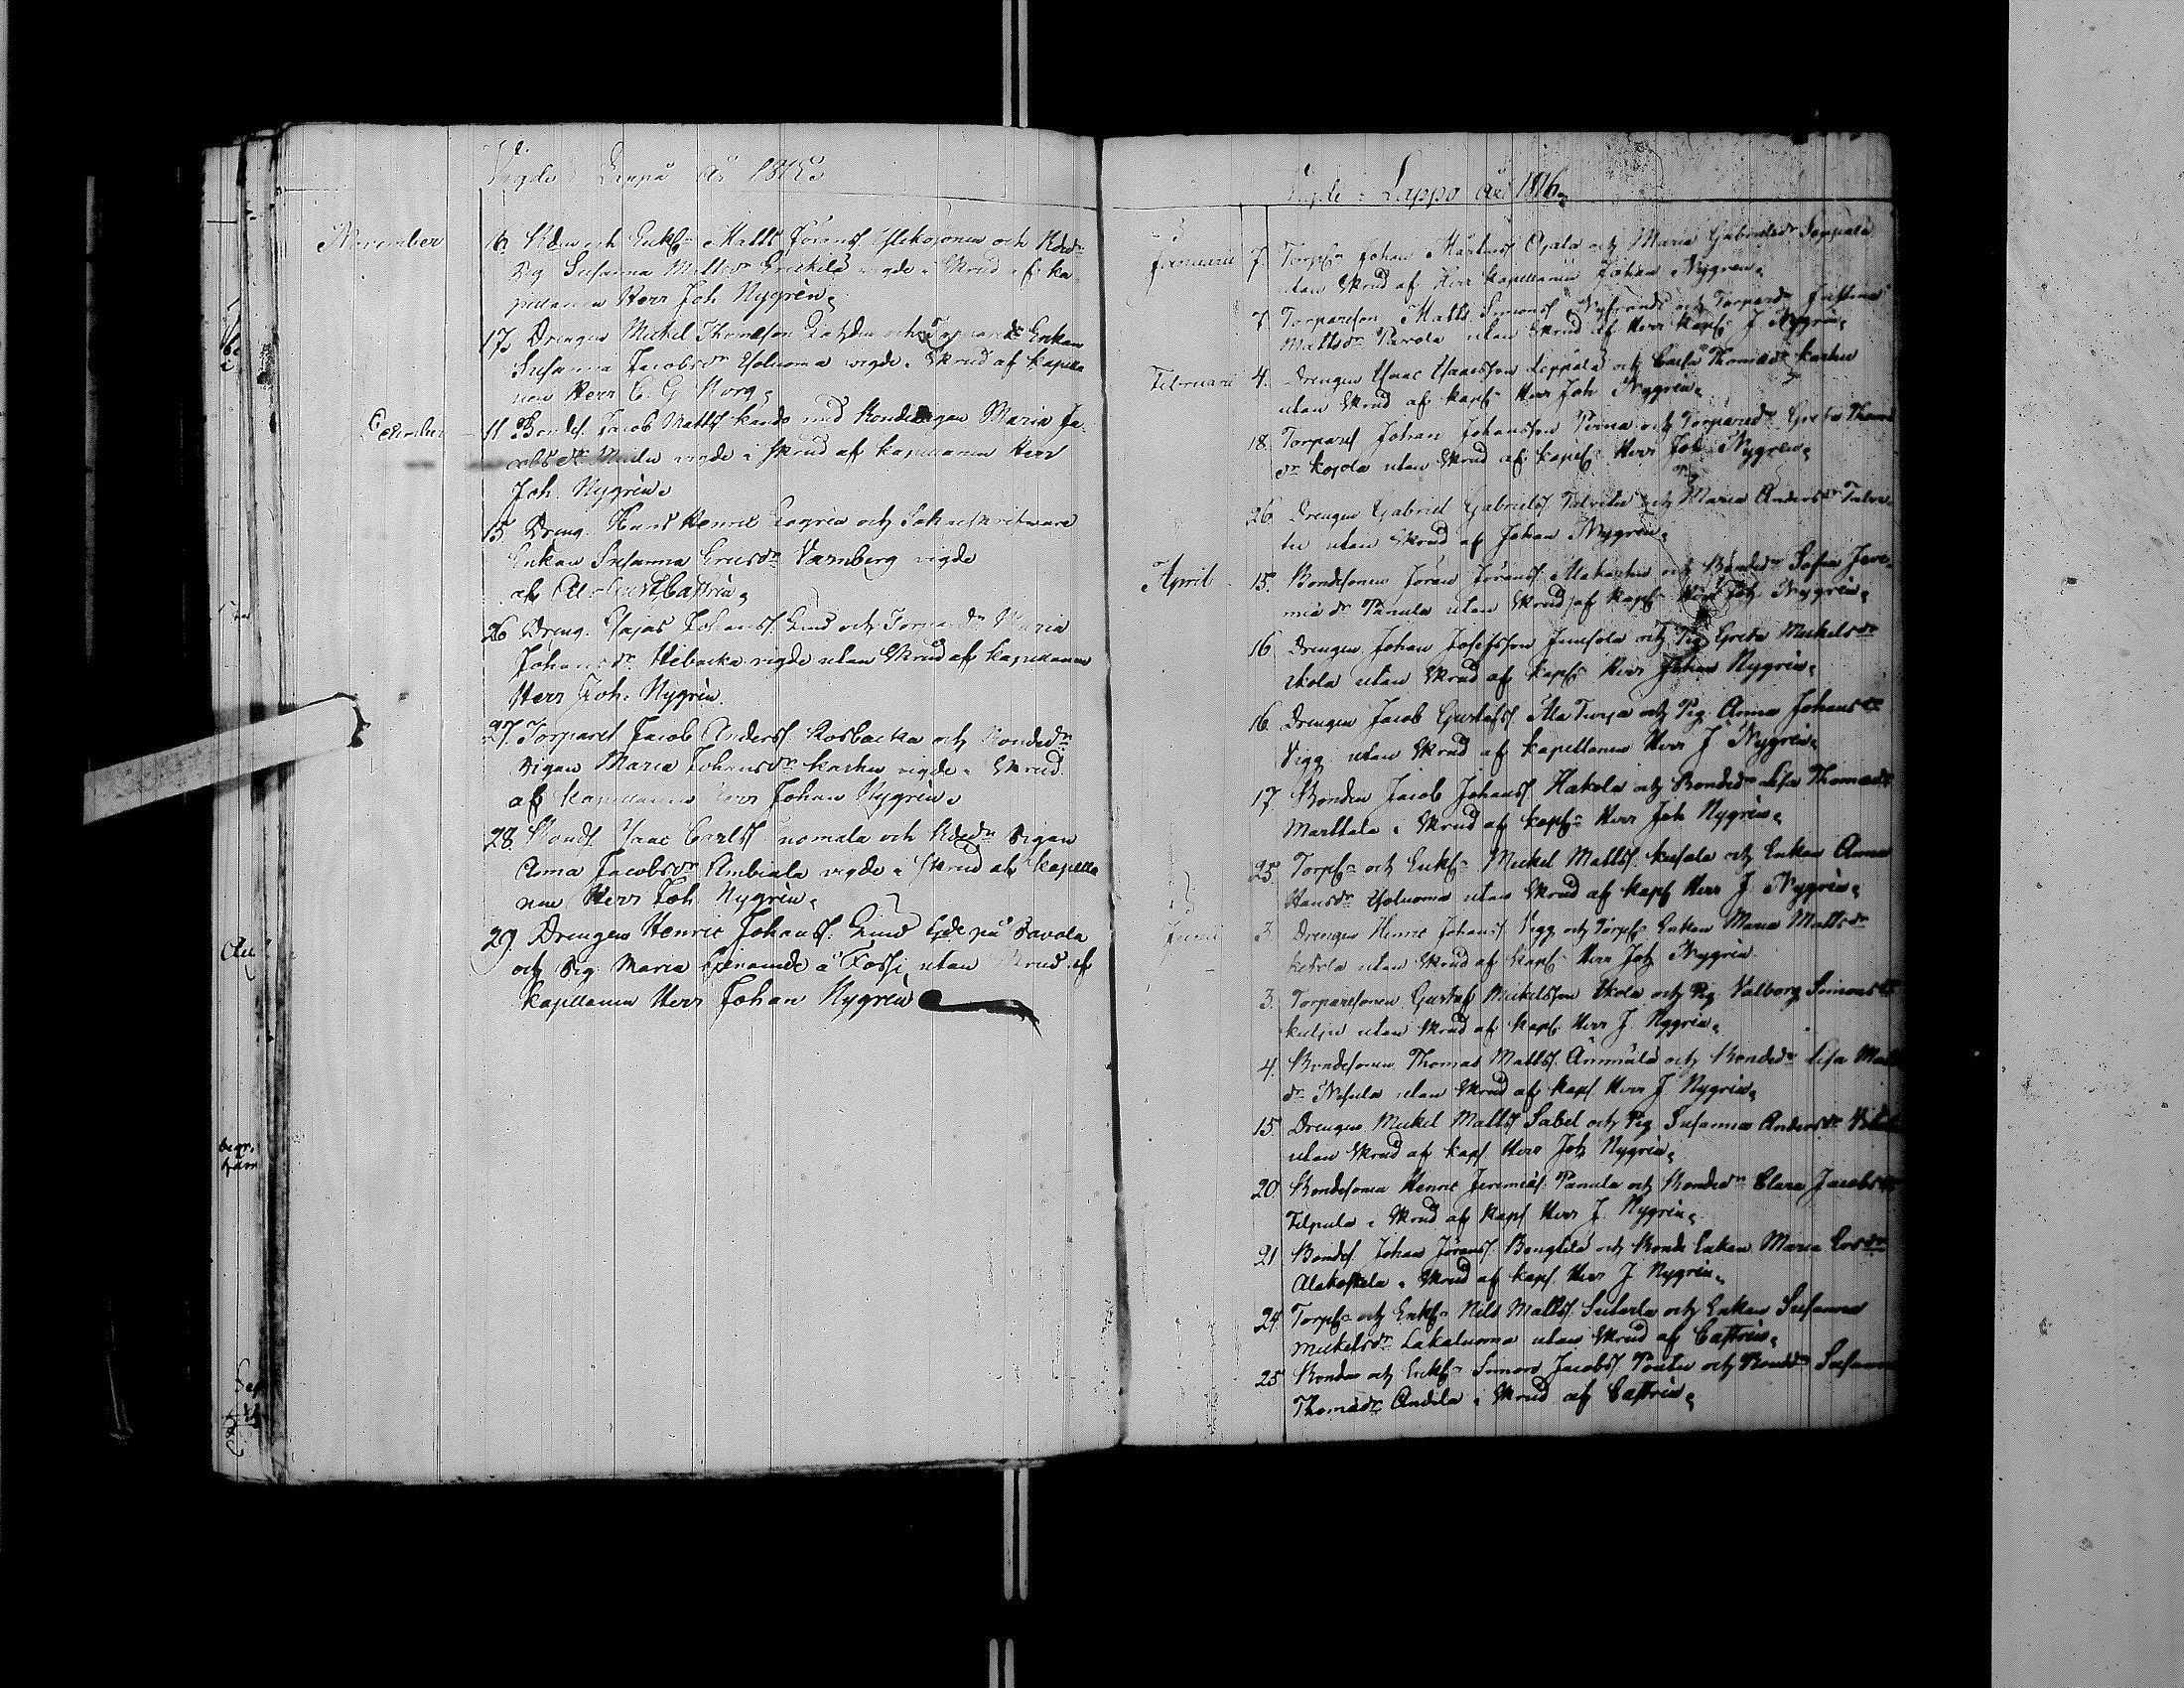 Vigde i Lappo År 1815
November
16 Bdn och Enkl. Matts Jörans Yliköjonen och Bdedr
Pig Susanna Mattsdr Erickilä vigde i Skrud af ka-
pellanen Herr Joh Nygrèn
17. Drengen Mickel Thomsson och Enkan
Susanna Jacobsdr Yoluoma vigde i Skrud af kapella
nen Herr C. G. Norg
December
11 Bondes. Jacob Matts kando med Bondepigan Maria Ja-
cobsdr vigde i skrud af kapellanen Herr
Joh. Nygrèn
15. Dreng. Hans Henric och
Enkan Susanna Ericsdr Varnberg vigde
af Castrèn
26 Dreng. Esajas Johans. Lind och Torparedr Maria
Johansdr Hebacka vigde utan Skrud af kapellanen
Herr Joh. Nygrèn.
27. Torpares Jacob Anders. Rosbacka och Bondedr
Pigan Maria Johansdr karhu vigde i Skrud
af kapellanen Herr Johan Nygrèn
28. Bonds Isaac Carls uomala och Bdedr Pigan
Anna Jacobsdr Ambiala vigde i Skrud af kapella
nen Herr Joh. Nygrèn
29. Drengen Henric Johans. Lind på Savola
och Pig. Maria å Fossi utan Skrud af
kapellanen Herr Johan Nygrèn
Vigde i Lappo År 1816
Januarii 7. Torps. Johan Ojala och Maria Gabrielsdr Seppälä
utan Skrud af Herr kapellanen Johan Nygren
7 Torpareson Matts Simons och Torparedr Justina
Mattsdr Pavola utan Skrud af Herr kapl. J. Nygrèn
Februarii 4. Drengen Isaac Isaacsson Leppälä och Caisa Thomasdr karhu
utan Skrud af kapl. Herr Joh Nygrèn
18. Torpares Johan Johansson Perna och Torparedr Greta Thomas
dr kojola utan Skrud af kapl. Herr Joh Nygren
26 Drengen Gabriel Gabriels. Talvitie och Maria Andersdr Talvi-
tie utan Skrud af Johan Nygrèn
April 15. Bondesonen Jöran Jörans. Alakarhu och Bondedr Sofia Jere-
miædr Panula utan Skrud af kapl. Herr Joh Nygrèn
16 Drengen Johan Josefsson Junsola och Pig Greta Mickelsdr
Ekola utan Skrud af kapl. Herr Johan Nygrèn
16. Drengen Jacob Gustafs. Ala Turja och Pig. Anna Johansdr
Vigg utan Skrud af kapellanen Herr J Nygrèn
17. Bonden Jacob Johans Hakola och Bondedr Lisa Thomasdr
Marttala i Skrud af kapl. Herr Joh Nygrèn
25 Torps. och Enkl. Mickel Matts. kusala och Enkan Anna
Hansdr Yoluoma utan Skrud af kapl. Herr J. Nygrèn
Junii 3. Drengen Henric Johans Vigg och Torps. Enkan Maria Mattsdr
ketola utan Skrud af kapl. Herr Joh Nygrèn.
3. Torparesonen Gustaf Mickelsson Ekola och Pig Valborg Simonsdr
kulju utan Skrud af kapl. Herr J. Nygrèn
4. Bondesonen Thomas Matts. Ämmälä och Bondedr Lisa Matts
dr Nisula utan Skrud af kapl. Herr J. Nygrèn
15. Drengen Mickel Matts Sabel och Pig Susanna Andersdr
utan Skrud af kapl. Herr Joh Nygrèn
20 Bondesonen Henric Jeremiæs Panula och Bondedr Clara Jacobsdr
Filpula i Skrud af kapl. Herr J. Nygrèn
21 Bondes Johan Jörans. Bengtilä och Bonde Enkan Maria Ersdr
Alakoskela i Skrud af kapl. Herr J Nygrèn
24 Torps. och Enkl. Nils Matts. Suitarla och Enkan Susanna
Mickelsdr Lakaluoma utan Skrud af Castrèn
25 Bonden och Enkl. Simon Jacobs Poutu och Bondedr Susanna
Thomasdr Andila i Skrud af Castrèn